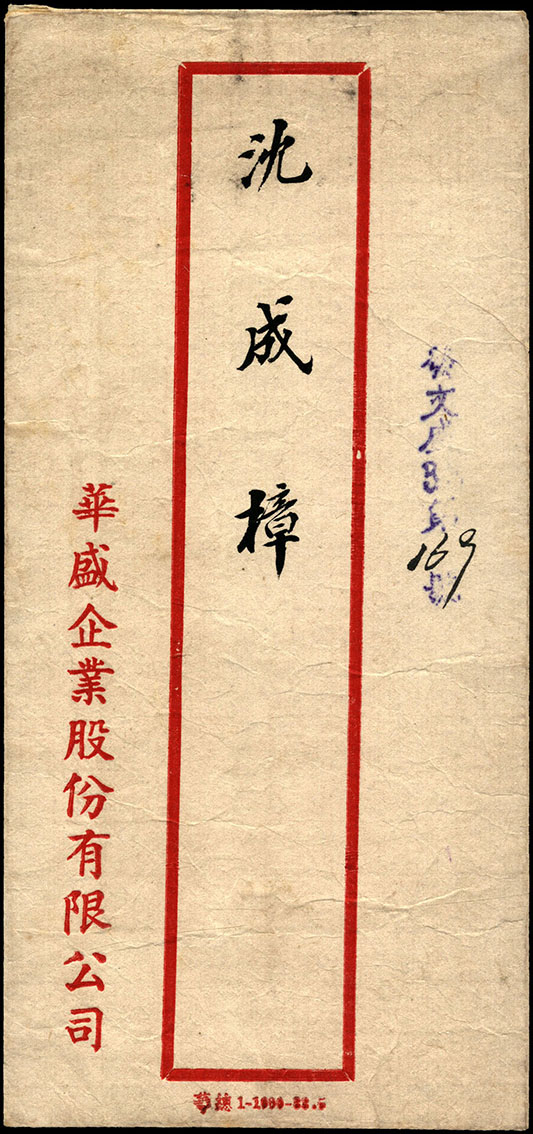 沈成樟
169
華盛企業股份有限公司
華總 1-1000-22.5